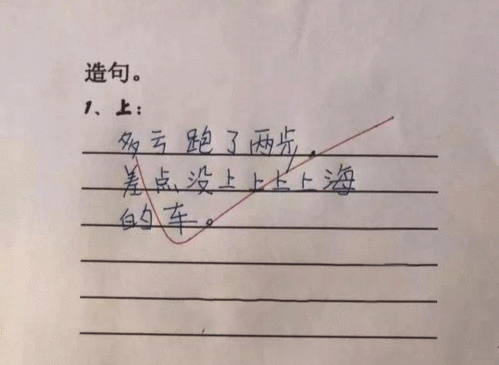 造句。
1、上：
多亏跑了两步，
差点没上上上上海
的车。